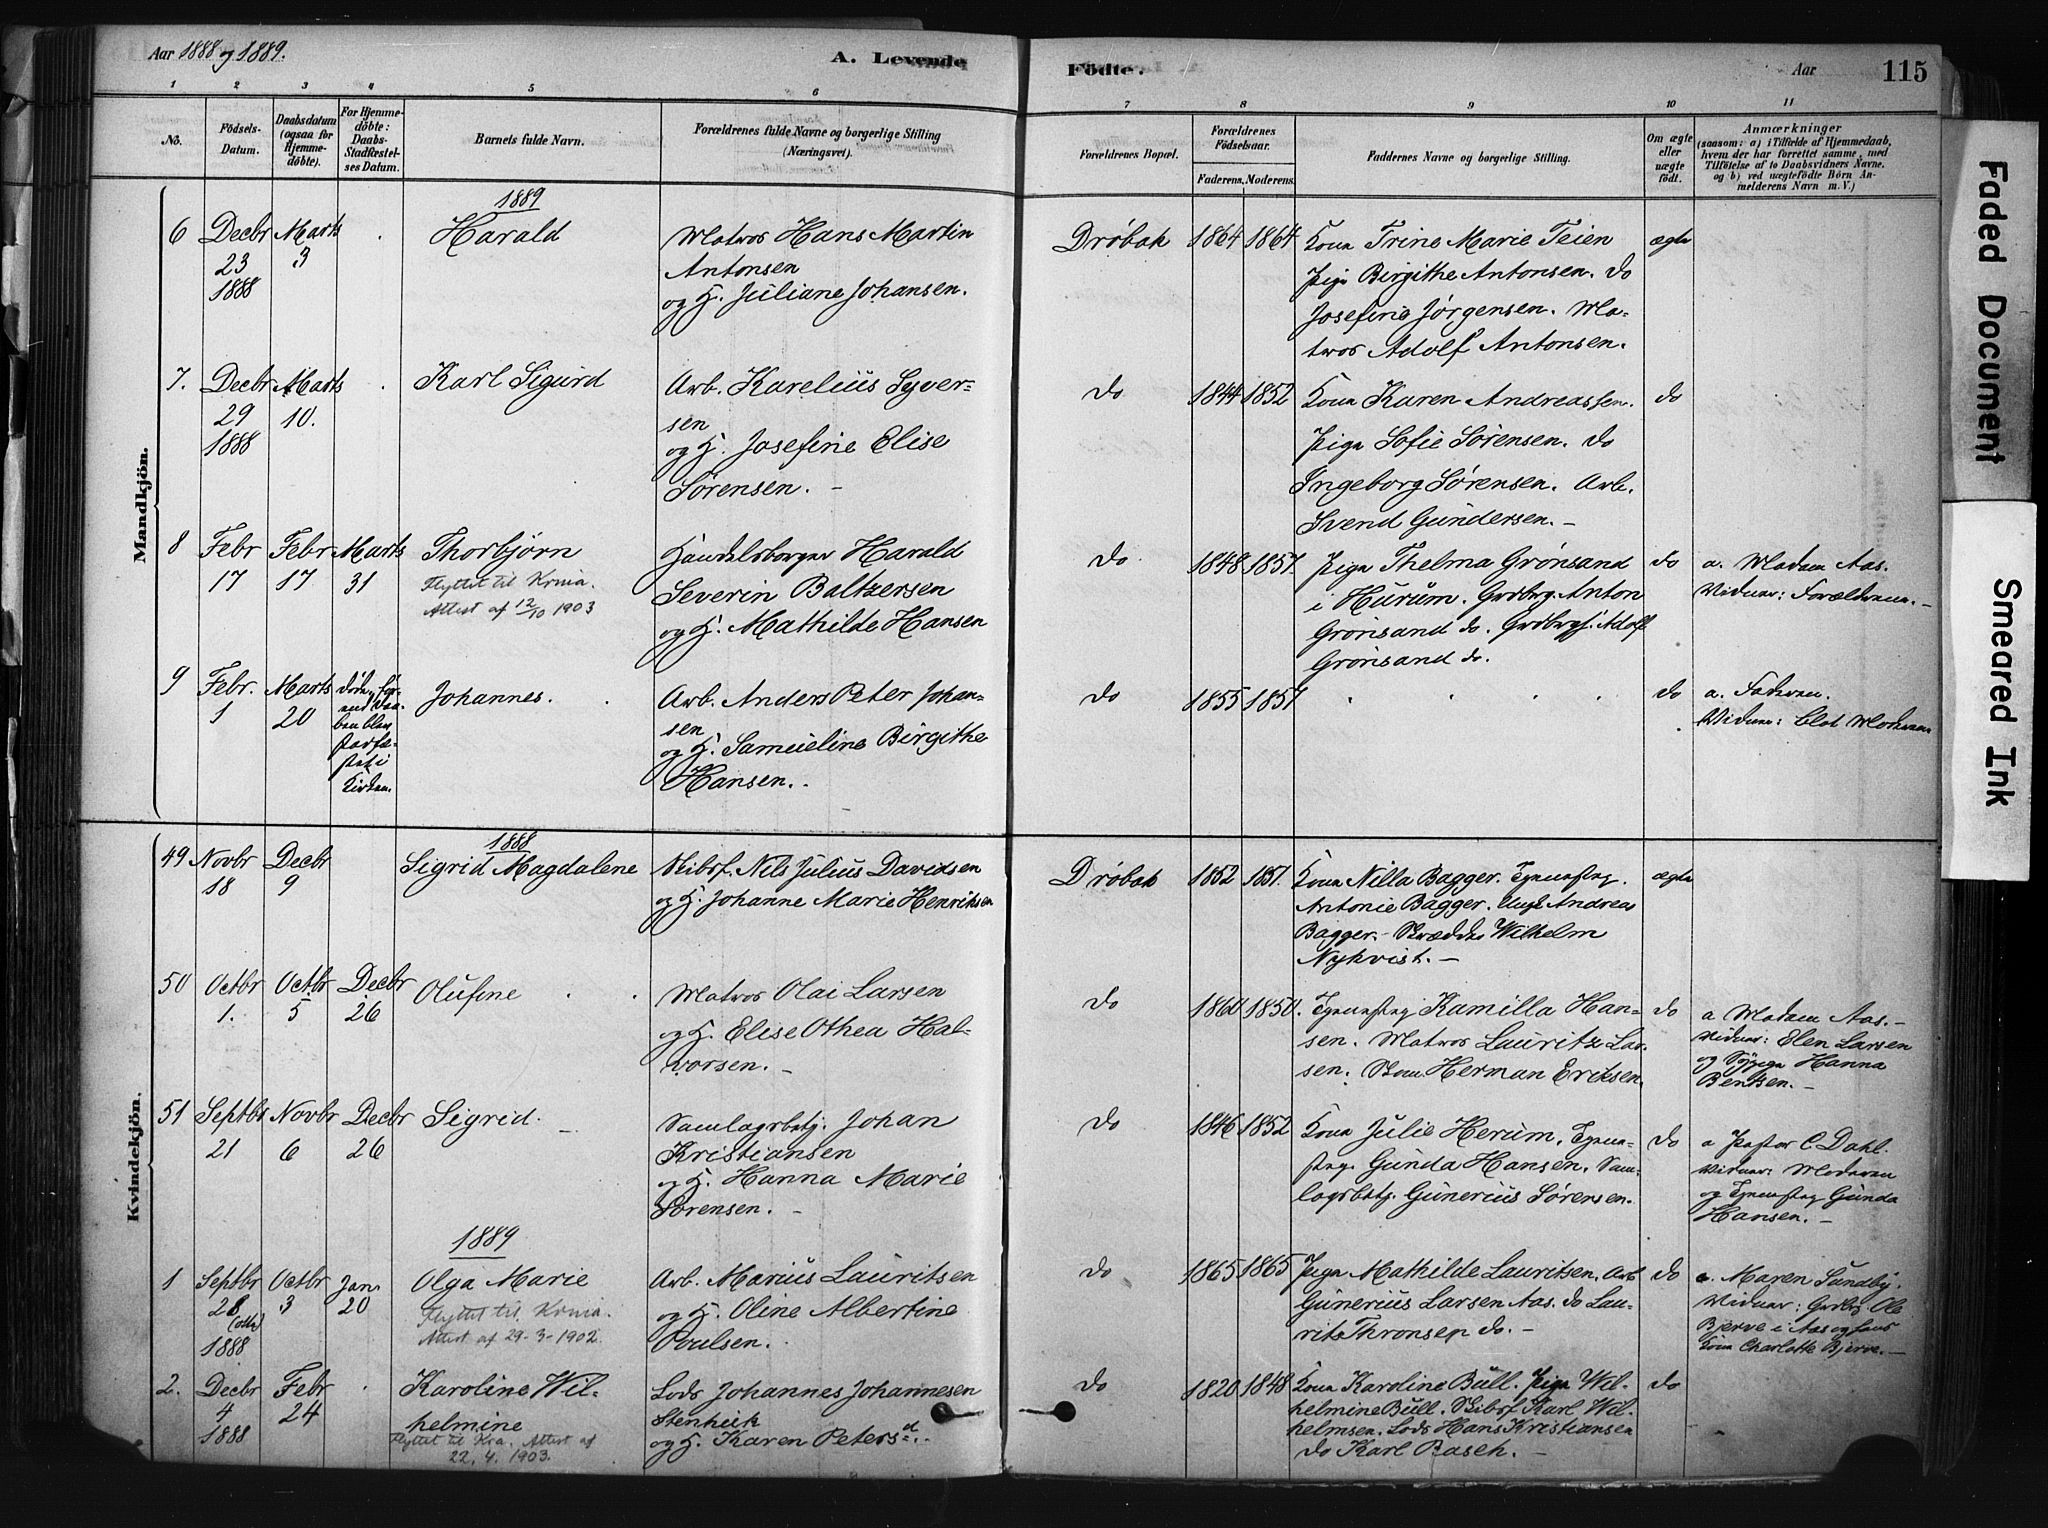 Aar 1888 og 1889.
A. Levende
Födte.
Aar
115
1
2
3
4
5
6
7
8
9
10
11
No.
Födsels-
Datum.
Daabsdatum
(ogsaa for
Hjemme-
döbte).
For Hjemme-
döbte:
Daabs-
Stadfæstel-
ses Datum.
Barnets fulde Navn.
Forældrenes fulde Navne og borgerlige Stilling
(Næringsvei).
Forældrenes Bopæl.
Forældrenes
Födselsaar.
Faderens.
Moderens.
Faddernes Navne og borgerlige Stilling.
Om ægte
eller
uægte
födt.
Anmærkninger
(saasom: a) i Tilfælde af Hjemmedaab,
hvem der har forrettet samme, med
Tilföielse af to Daabsvidners Navne.
og b) ved uægtefödte Börn An-
melderens Navn m. V.)
Mandkjön.
1889
6
Decbr
23
1888
Marts
3
Harald
Matros Hans Martin
Antonsen
og H. Juliane Johansen.
Drøbak
1864
1864
Kona Trine Marie Teien
Pige Birgithe Antonsen. do
Josefine Jørgensen. Ma-
tros Adolf Antonsen.
ægte
7.
Decbr
29
1888
Marts
10.
Karl Sigurd
Arb. Karelius Syver-
sen
og H. Josefine Elise
Sørensen. -
do
1844
1852
Kona Karen Andreassen.
Piga Sofie Sørensen. do
Ingeborg Sørensen. Arb.
Svend Gundersen. -
do
8
Febr
17
Febr
17
Marts
31
Thorbjørn
Flyttet til Krnia.
Attest af 12/10 1903
Handelsborger Harald
Severin Baltzersen
og H. Mathilde Hansen
do
1848
1857
Piga Thelma Grønsand
i Hurum. Grdbrg. Anton
Grønsand do. Grdbrgs. Adolf
Grønsand do.
do
a. Madam Aas.
Vidner: Forældrene. -
9
Febr.
1
Marts
20
døde, før-
end Daa-
ben blev
stadfæ-
stet i
Kirken.
Johannes.
Arb. Anders Peter Johan-
sen
og H. Samueline Birgithe
Hansen.
do
1855
1857
do
a. Faderen.
Vidner: blot Moderen
Kvindekjön.
1888
49
Novbr
18
Decbr
9
Sigrid Magdalene
Skibsf. Nils Julius Davidsen
og H. Johanne Marie Henriksen
Drøbak
1852
1857.
Kona Nilla Bagger.
Antonie Bagger. Ungk Andreas
Bagger. Skrædder Wilhelm
Nykvist. -
ægte
50
Octbr
1.
Octbr
5
Decbr
26
Olufine
Matros Olai Larsen
og H. Elise Othea Hal-
vorsen. -
do
1860
1850.
Kamilla Han-
sen. Matros Lauritz Lar-
sen. Herman Eriksen.
do
a Madam Aas. -
Vidner: Elen Larsen
og Sypige Hanna
Bentzen. -
51
Septbr
21
Novbr
6
Decbr
26
Sigrid.
Samlagsbstj. Johan
Kristiansen
og H. Hanna Marie
Sørensen. -
do
1846
1852
Kona Julie Herum.
Gunda Hansen. Sam-
lagsbstj. Gunerius Sørensen.
do
a Pastor C. Dahl.
Vidner: Moderen
og Gunda
Hansen. -
1889
1
Septbr
28
1888
Octbr
3
Jan.
20
Olga Marie
Flyttet til Krnia.
Attest af 29-3-1902.
Arb. Marius Lauritsen
og H. Oline Albertine
Poulsen.
do
1865
1865
Piga Mathilde Lauritsen. Arb
Gunerius Larsen Aas. do Lau-
rits Thronsen do. -
do
a. Maren Sundby.
Vidner: Grdbr. Ole
Bjerve i Aas og hans
Kona Charlotte Bjerve. -
2.
Decbr
4
1888
Febr
24
Karoline Wil-
helmine
Flyttet til Kra. Attest af
22. 4. 1903.
Lods Johannes Johannesen
Stenheik
og H. Karen Petersd.
do
1820
1848
Kona Karoline Bull. Piga Wil-
helmine Bull. Skibsf Karl Wil-
helmsen. Lods Hans Kristiansen
do Karl Rasch. -
do
Faded Document
Smeared Ink